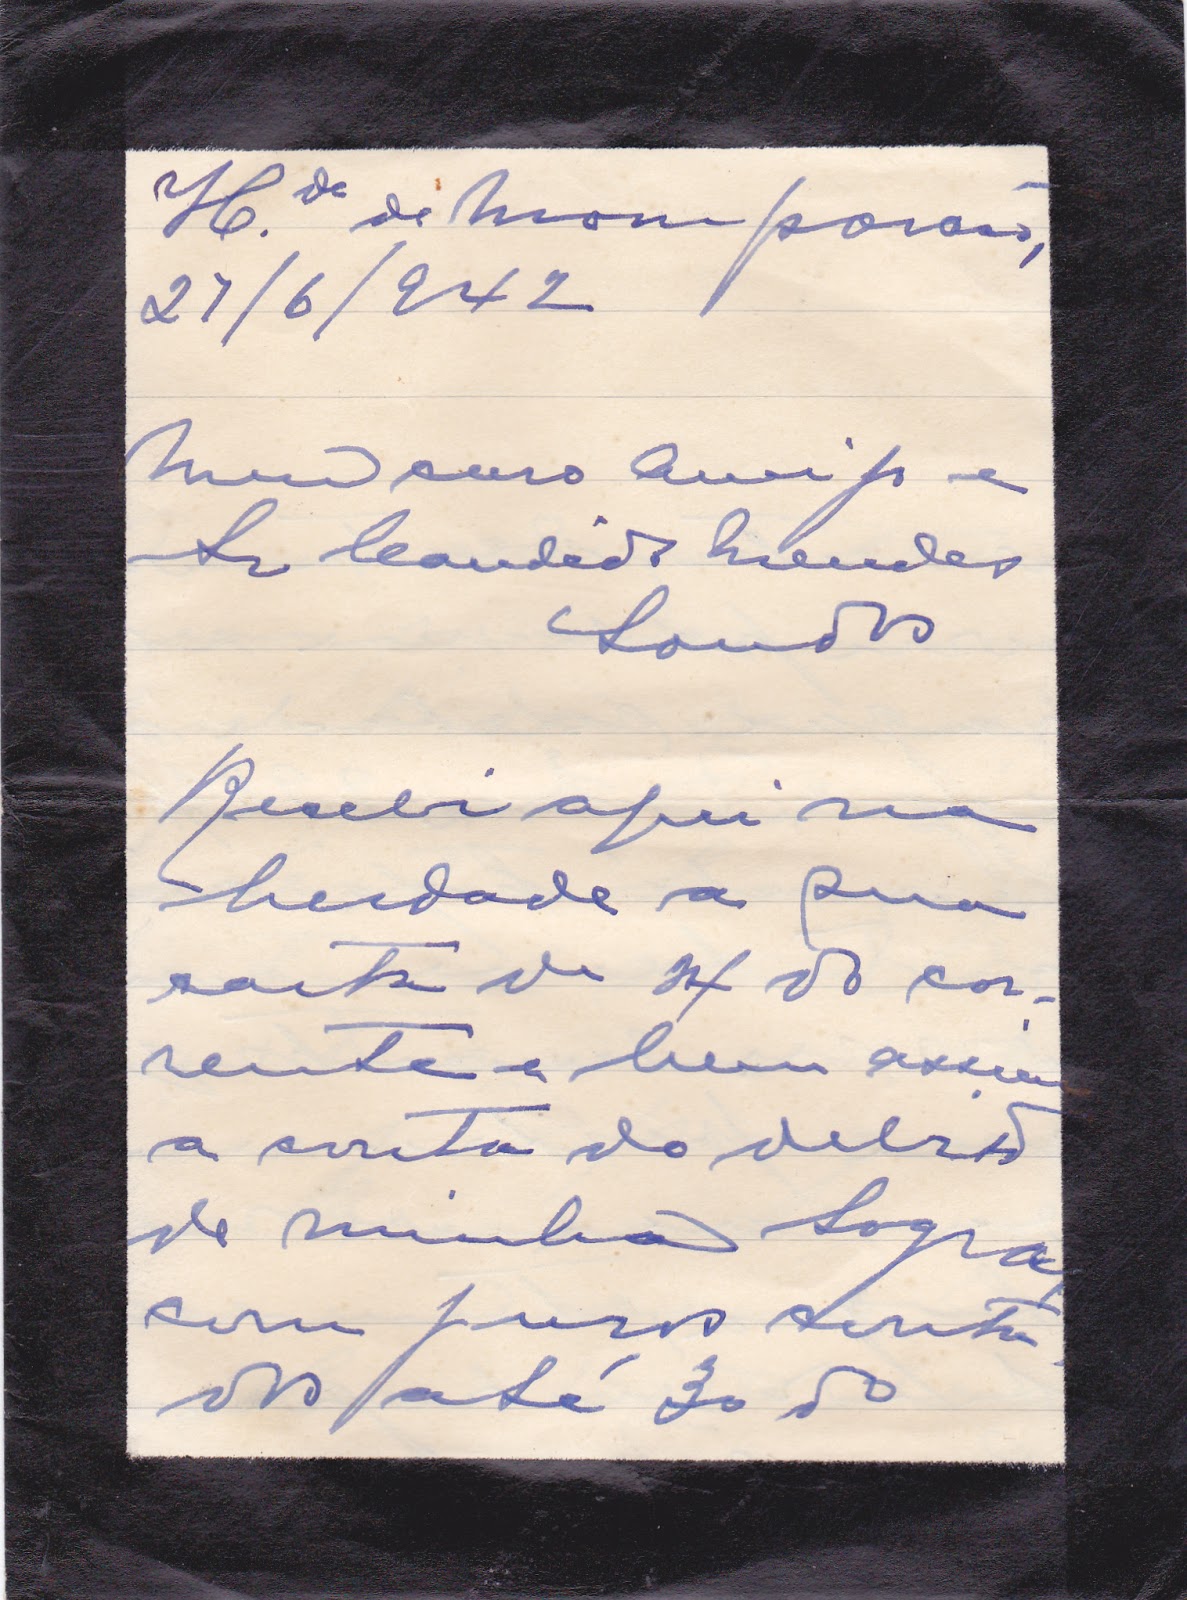 H.de de Momporcão,
27/6/942
Meu caro Amigo e
Sr Candido Mendes
Saudo
Recebi aqui na
herdade a sua
carta de 24 do cor-
rente e bem assim
a conta do debito
de minha Sogra,
com juros conta-
dos até 30 do